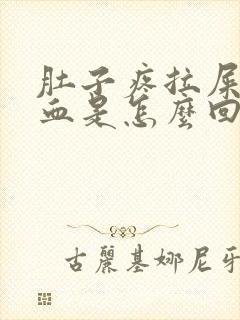 肚子疼拉屎
血是怎麼回
古麗基娜尼牙